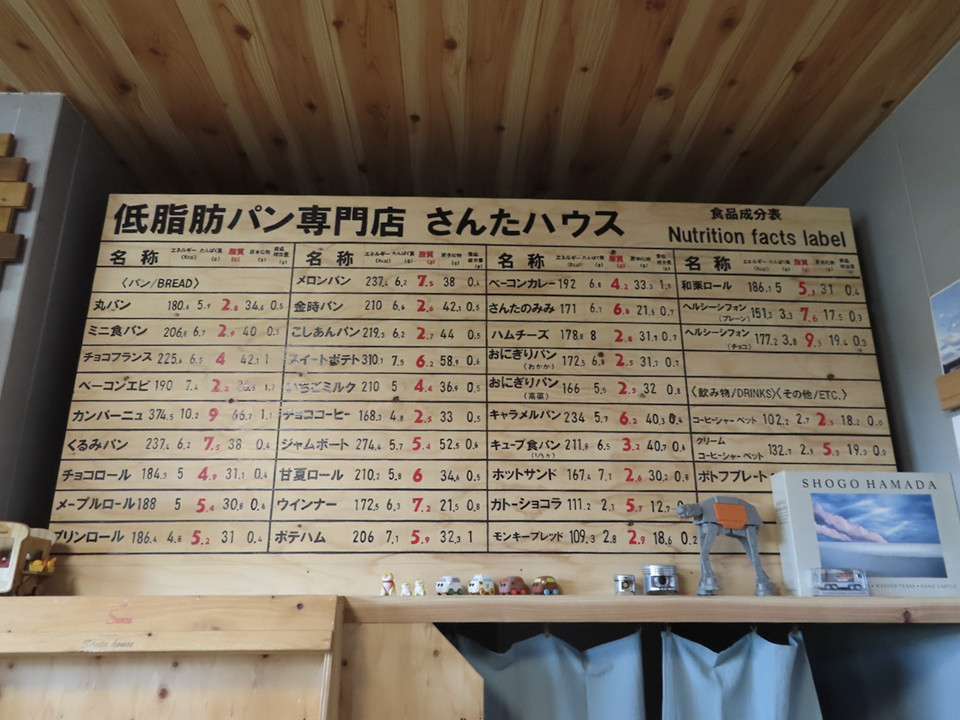 低脂肪パン専門店 さんたハウス
食品成分表
Nutrition facts label
名称 エネルギー(Kcal) たんぱく質(g) 脂質(g) 炭水化物(g) 食塩相当量(g)
〈パン/BREAD〉
丸パン 180.4 5.9 2.8 34.6 0.5
ミニ食パン 206.8 6.7 2.9 40 0.5
チョコフランス 225.4 6.5 4 42.1 1
ベーコンエピ 190 7.4
カンパーニュ 374.5 10.2 9 66.7 1.1
くるみパン 237.4 6.2 7.5 38 0.4
チョコロール 184.3 5 4.9 31.1 0.4
メープルロール 188 5 5.4 30.8 0.4
プリンロール 186.4 4.8 5.2 31 0.4
名称 エネルギー(Kcal) たんぱく質(g) 脂質(g) 炭水化物(g) 食塩相当量(g)
メロンパン 237.4 6.2 7.5 38 0.4
金時パン 210 6.6 2.6 42.1 0.5
こしあんパン 219.3 6.2 2.7 44 0.5
スイートポテト 310.1 7.5 6.2 58.9 0.6
いちごミルク 210 5 4.4 36.9 0.5
チョココーヒー 168.3 4.8 2.5 33 0.5
ジャムボート 274.4 5.7 5.4 52.5 0.6
甘夏ロール 210.2 5.8 6 34.6 0.5
ウインナー 172.5 6.3 7.2 21.5 0.8
ポテハム 206 7.1 5.9 32.3 1
名称 エネルギー(Kcal) たんぱく質(g) 脂質(g) 炭水化物(g) 食塩相当量(g)
ベーコンカレー 192 6.8 4.2 33.3 1.1
さんたのみみ 171 6.1 6.8 21.5 0.7
ハムチーズ 178.8 8 2.8 31.9 0.7
おにぎりパン(おかか) 172.5 6.8 2.5 31.1 0.7
おにぎりパン(高菜) 166 5.5 2.5 32 0.8
キャラメルパン 234 5.7 6.2 40.3 0.4
キューブ食パン 211.8 6.5 3.2 40.7 0.6
ホットサンド 167.4 7.1 2.6 30.2 0.8
ガトーショコラ 111.2 2.1 5.7 12.7
モンキーブレッド 109.3 2.8 2.9 18.6 0.2
名称 エネルギー(Kcal) たんぱく質(g) 脂質(g) 炭水化物(g) 食塩相当量(g)
和栗ロール 186.1 5 5.3 31 0.4
ヘルシーシフォン(プレーン) 151.3 3.3 7.6 17.5 0.3
ヘルシーシフォン(チョコ) 177.2 3.8 9.3 19.4 0.3
〈飲み物/DRINKS〉〈その他/ETC.〉
コーヒーシャーベット 102.2 2.7 2.5 18.2 0.0
クリームコーヒーシャーベット 132.7 2.9 5.3 19.3 0.0
ポトフプレート
SHOGO HAMADA